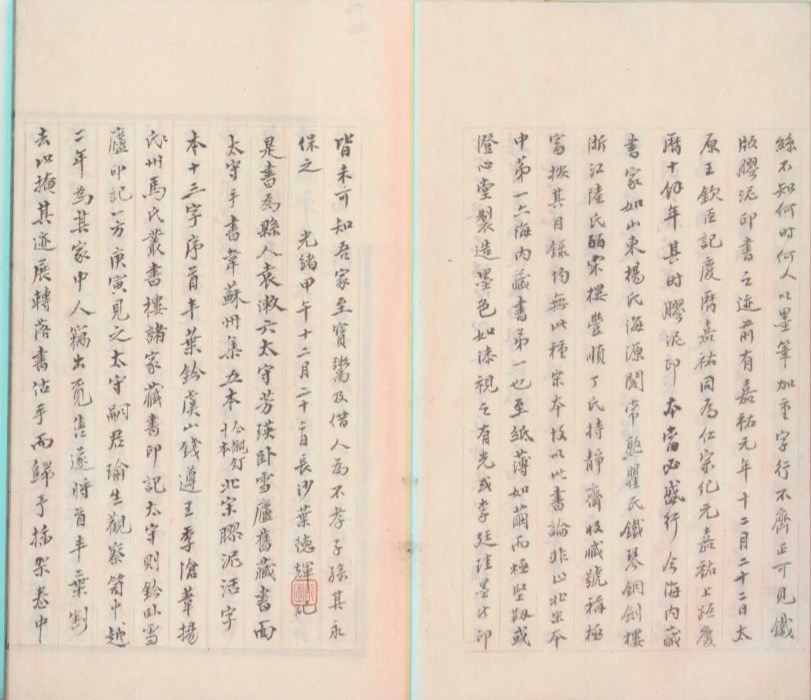 絲不知何時何人以墨筆加重字行不齊正可見鐵
版膠泥印書之迹前有嘉祐元年十二月二十二日太
原王欽臣記慶曆嘉祐同為仁宗紀元嘉祐上距慶
曆十餘年其時膠泥印本當必盛行今海內藏
書家如山東楊氏海源閣常熟瞿氏鐵琴銅劍樓
浙江陸氏皕宋樓豐順丁氏持靜齋收藏號稱極
富撿其目錄均無此種宋本故以此書論非止北宋本
中第一亦海內藏書第一也至紙薄如繭而極堅韌或
澄心堂製造墨色如漆視之有光或李廷珪墨所印
皆未可知吾家至寶鬻及借人為不孝子孫其永
保之 光緒甲午十二月二十二日長沙葉德輝記
是書為縣人袁漱六太守芳瑛臥雪廬舊藏書面
太守手書韋蘇州集五本今觀釘十本北宋膠泥活字
本十三字序首半葉鈐虞山錢遵王季滄葦揚
州馬氏叢書樓諸家藏書印記太守則鈐臥雪
廬印記一方庚寅見之太守嗣君瑜生觀察笥中越
二年為其家中人竊出覓售遂將首半葉割
去以掩其迹展轉落書估手而歸予插架卷中